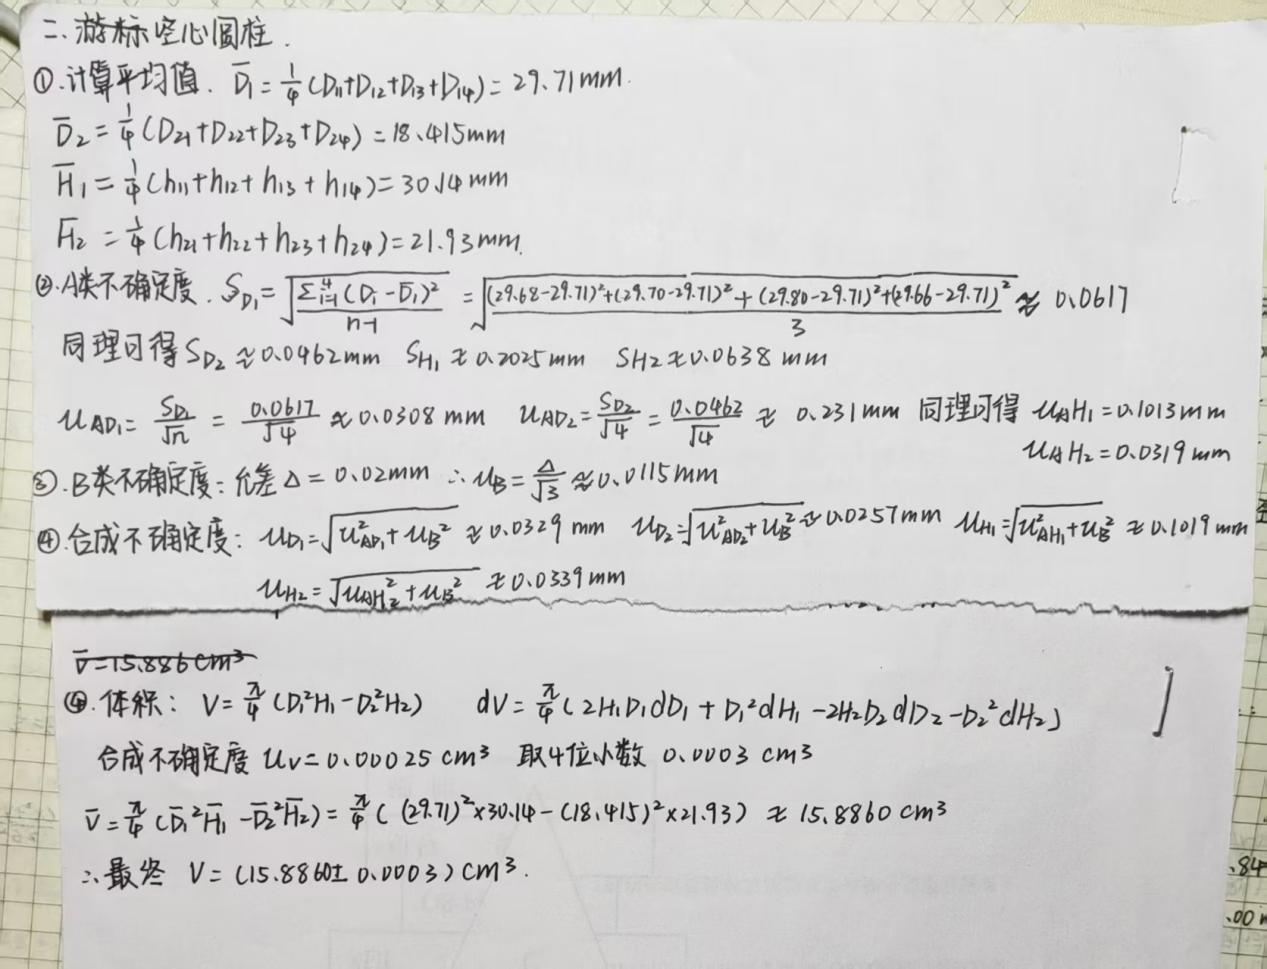 二、游标空心圆柱.
①.计算平均值. D̅₁=1/4(D₁₁+D₁₂+D₁₃+D₁₄)=29.71mm.
D̅₂=1/4(D₂₁+D₂₂+D₂₃+D₂₄)=18.415mm
H̅₁=1/4(h₁₁+h₁₂+h₁₃+h₁₄)=30.14mm
H̅₂=1/4(h₂₁+h₂₂+h₂₃+h₂₄)=21.93mm.
②.A类不确定度. S_D₁=√(Σ⁴ᵢ₌₁(Dᵢ-D̅₁)²/(n-1))=√(((29.68-29.71)²+(29.70-29.71)²+(29.80-29.71)²+(29.66-29.71)²)/3)≈0.0617
同理可得S_D₂≈0.0462mm S_H₁≈0.2025mm SH2≈0.0638mm
u_AD₁=S_D₁/√n=0.0617/√4≈0.0308mm u_AD₂=S_D₂/√4=0.0462/√4≈0.231mm 同理可得 u_AH₁=0.1013mm
u_AH₂=0.0319mm
③.B类不确定度:允差Δ=0.02mm ∴u_B=Δ/√3≈0.0115mm
④.合成不确定度: u_D₁=√(u²_AD₁+u_B²)≈0.0329mm u_D₂=√(u²_AD₂+u_B²)≈0.0257mm u_H₁=√(u²_AH₁+u_B²)≈0.1019mm
u_H₂=√(u_AH₂²+u_B²)≈0.0339mm
V̅=15.886cm³
④.体积: V=π/4(D₁²H₁-D₂²H₂) dV=π/4(2H₁D₁dD₁+D₁²dH₁-2H₂D₂dD₂-D₂²dH₂)
合成不确定度 u_V=0.00025cm³ 取4位小数 0.0003cm³
V̅=π/4(D̅₁²H̅₁-D̅₂²H̅₂)=π/4((29.71)²×30.14-(18.415)²×21.93)≈15.8860cm³
∴最终 V=(15.8860±0.0003)cm³.
.84
.00